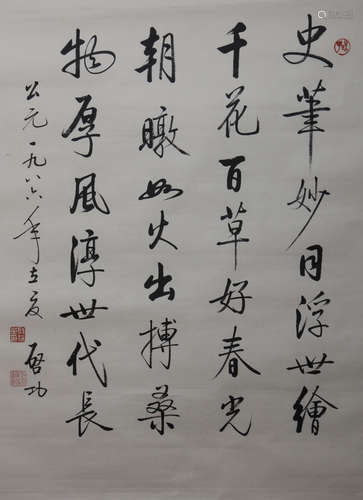 史筆妙同浮世繪
千花百草好春光
朝暾如火出搏桑
物厚風淳世代長
公元一九八六年立夏
啓功